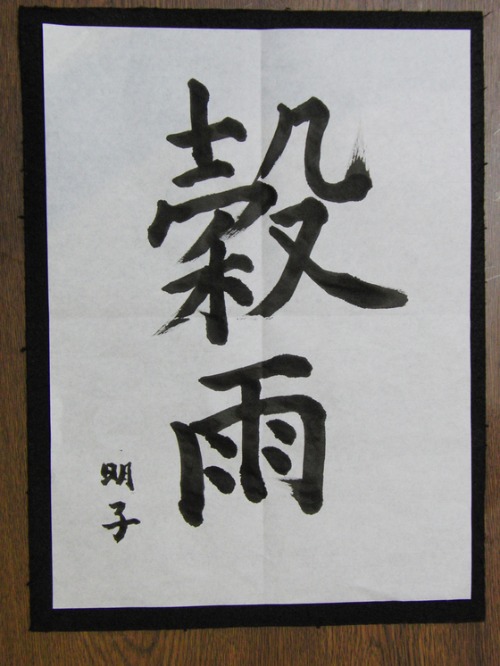 穀雨
明子